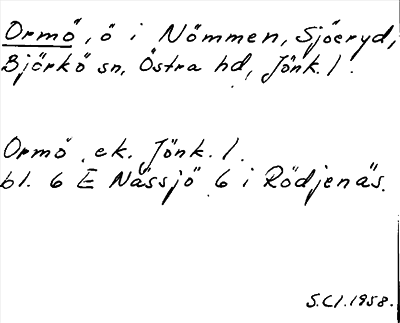 Ormö, ö i Nömmen, Sjöeryd,
Björkö sn, Östra hd, Jönk. l.
Ormö ek. Jönk. l.
bl. 6 E Nässjö 6 i Rödjenäs.
S.Cl. 1958.